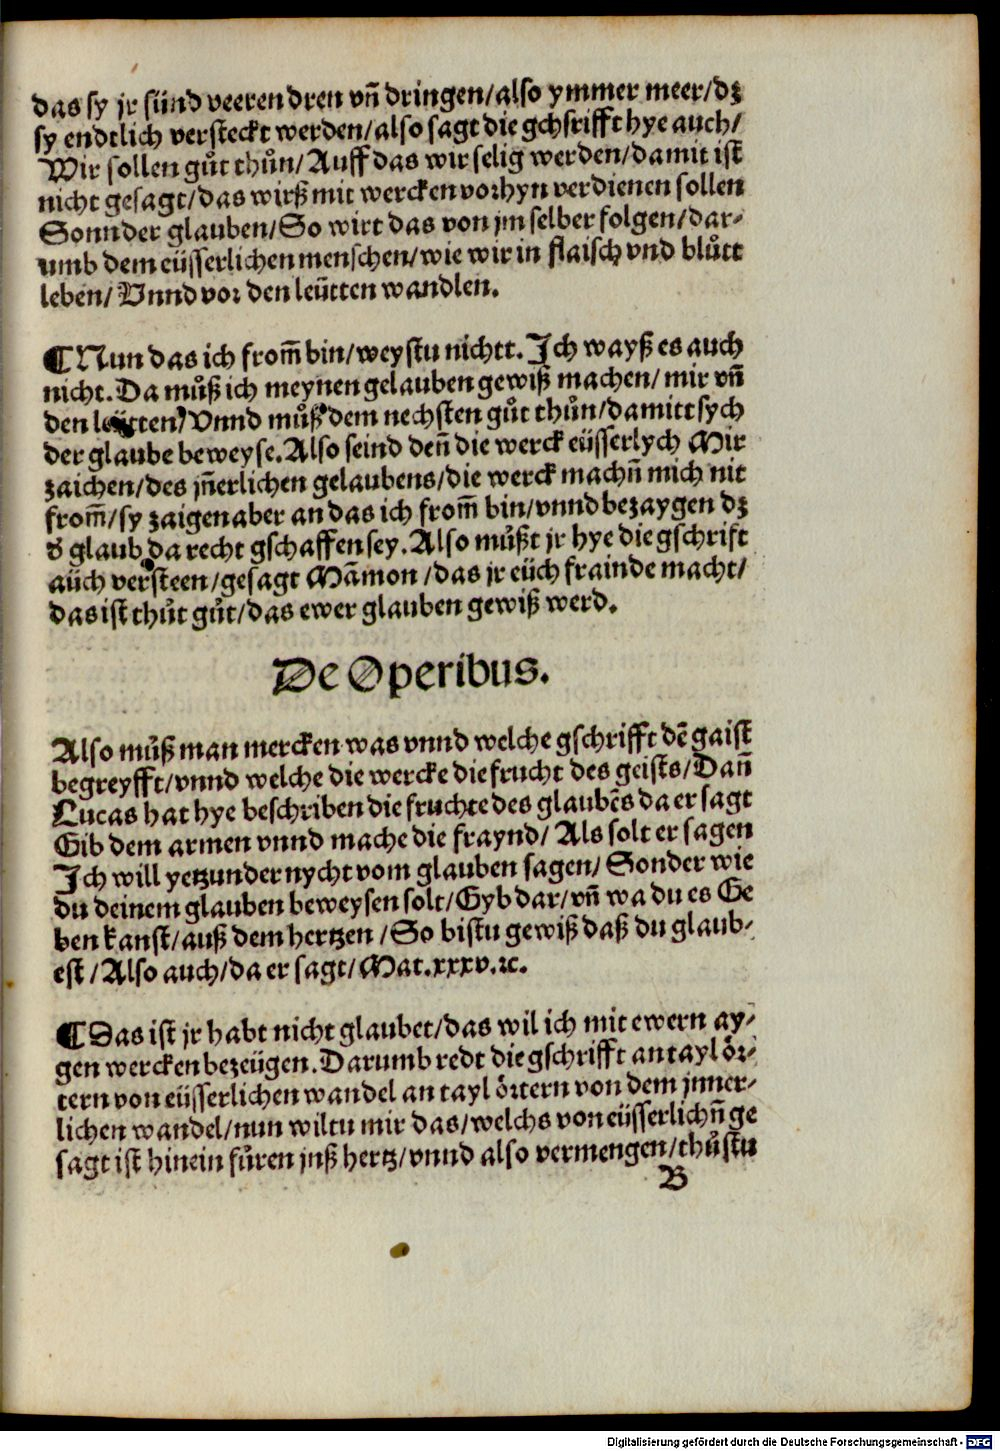 das sy jr sünd veeren dren vñ dringen/also ymmer meer/dz
sy endtlich versteckt werden/also sagt die gchsrifft hye auch/
Wir sollen gůt thůn/Auff das wir selig werden/damit ist
nicht gesagt/das wirß mit wercken vorhyn verdienen sollen
Sonnder glauben/So wirt das von jm selber folgen/dar-
umb dem eüsserlichen menschen/wie wir in flaisch vnd blůtt
leben/Vnnd vor den leütten wandlen.
¶Nun das ich from̃ bin/weystu nichtt. Ich wayß es auch
nicht. Da můß ich meynen gelauben gewiß machen/mir vñ
den leütten/Vnnd můß dem nechsten gůt thůn/damitt sych
der glaube beweyse. Also seind deñ die werck eüsserlych Mir
zaichen/des jñerlichen gelaubens/die werck machñ mich nit
from̃/sy zaigen aber an das ich from̃ bin/vnnd bezaygen dz
d' glaub da recht gschaffen sey. Also můßt jr hye die gschrift
aüch versteen/gesagt Mãmon/das jr eüch frainde macht/
das ist thůt gůt/das ewer glauben gewiß werd.
De Operibus.
Also můß man mercken was vnnd welche gschrifft dẽ gaist
begreyfft/vnnd welche die wercke die frucht des geists/Dañ
Lucas hat hye beschriben die fruchte des glaubẽs da er sagt
Gib dem armen vnnd mache die fraynd/Als solt er sagen
Ich will yetzunder nycht vom glauben sagen/Sonder wie
du deinem glauben beweysen solt/Gyb dar/vñ wa du es Ge
ben kanst/auß dem hertzen/So bistu gewiß daß du glaub-
est/Also auch/da er sagt/Mat.xxxv.ꝛc.
¶Das ist jr habt nicht glaubet/das wil ich mit ewern ay-
gen wercken bezeügen. Darumb redt die gschrifft an tayl ör-
tern von eüsserlichen wandel an tayl örtern von dem jnner-
lichen wandel/nun wiltu mir das/welchs von eüsserlichñ ge
sagt ist hinein fůren jnß hertz/vnnd also vermengen/thůstu
B
Digitalisierung gefördert durch die Deutsche Forschungsgemeinschaft - DFG